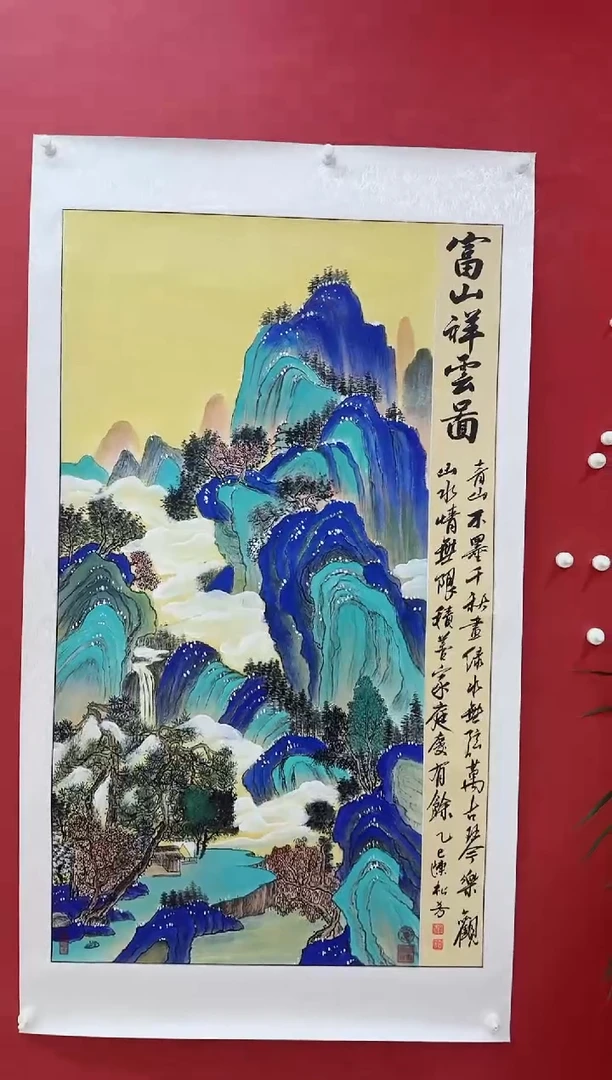 富山祥雲圖
青山不墨千秋畫綠水無弦萬古琴今樂觀
山水情無限積善家庭慶有餘乙巳陳松芳